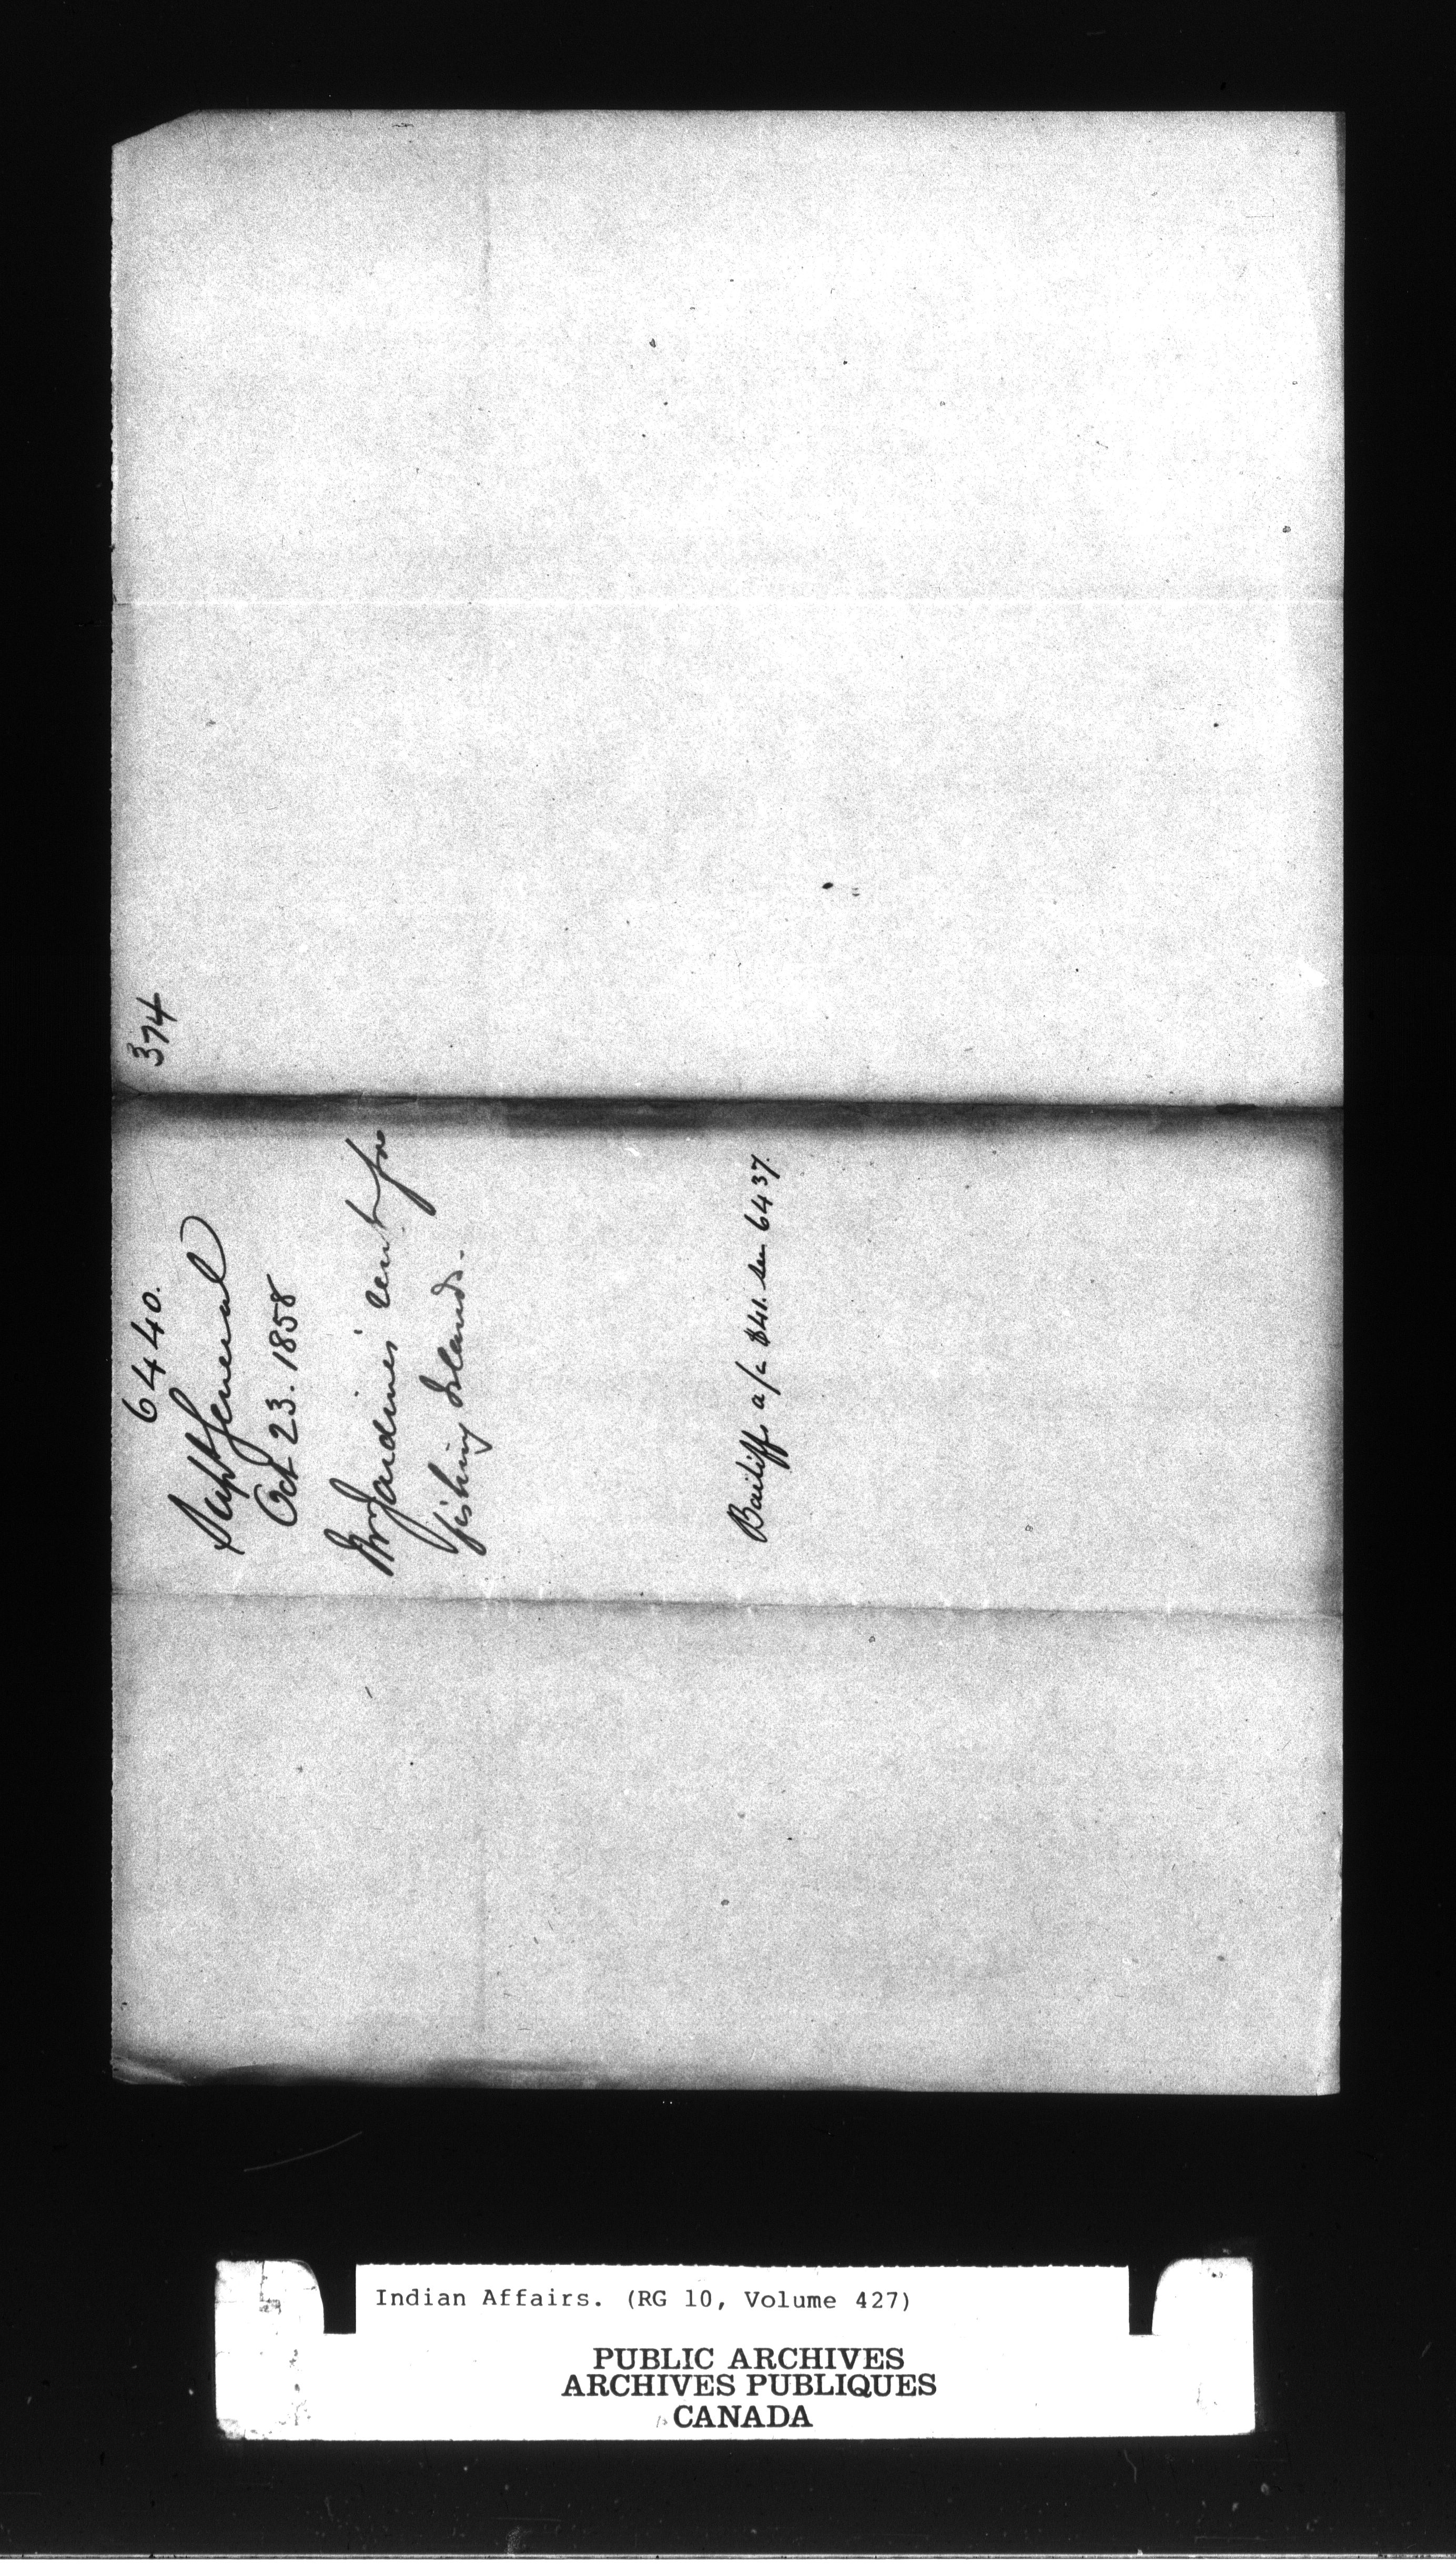 374
6440.
Supt General
Oct 23. 1858
Mr Jardines' rent for
fishing Islands.
Bailiffs a/c $41. see 6437.
Indian Affairs. (RG 10, Volume 427)
PUBLIC ARCHIVES
ARCHIVES PUBLIQUES
CANADA